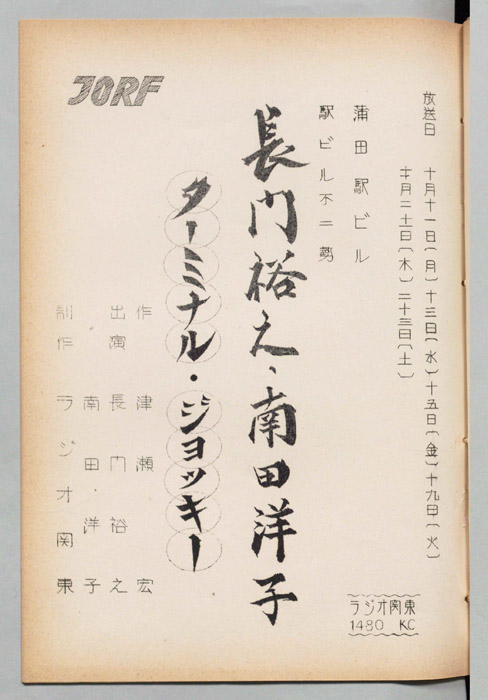 放送日 十月十一日(月)十三日(水)十五日(金)十九日(火)
廿一日(木)二十三日(土)
ラジオ関東
1480 KC
蒲田駅ビル
駅ビル不二勢
長門裕之、南田洋子
ターミナル・ジョッキー
JORF
作 津瀬宏
出演 長門裕之
南田洋子
制作 ラジオ関東